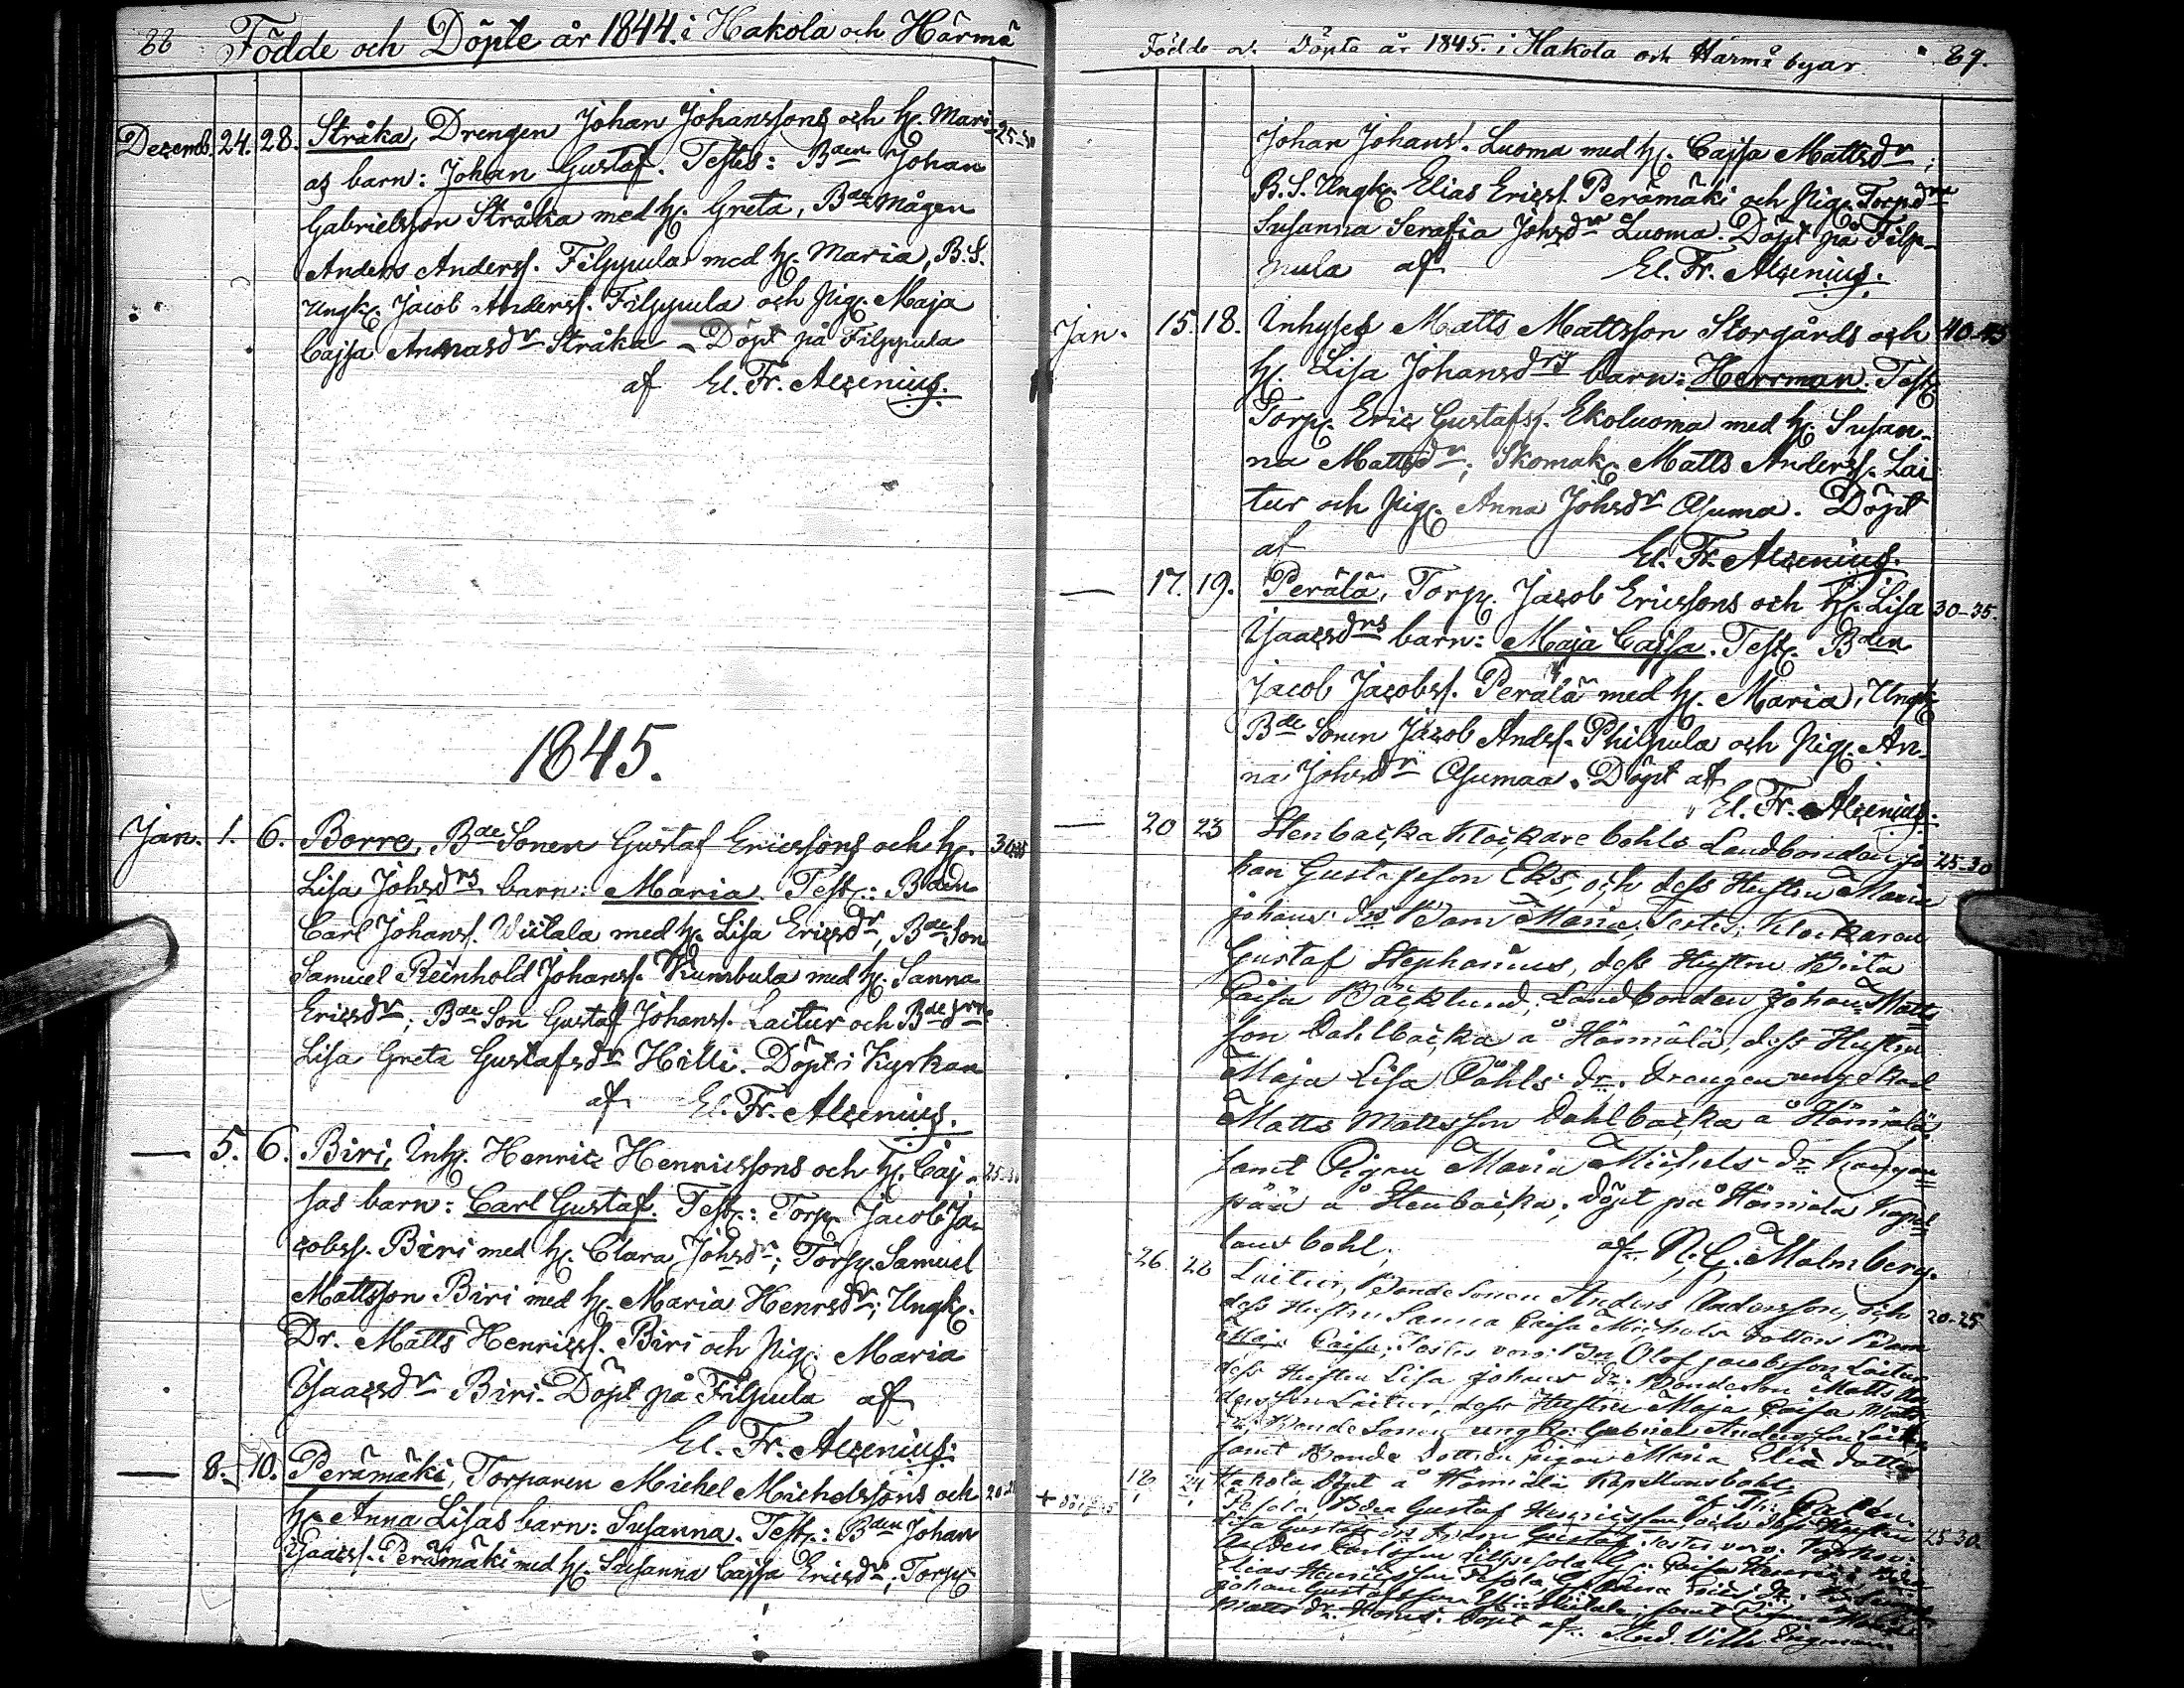 88 Födde och Döpte år 1844. i Hakola och Härmä
Decemb. 24. 28. Stråka, Drengen Johan Johanssons och H. Mari- 25-30
as barn: Johan Gustaf. Testes: Bden Johan
Gabrielsson Stråka med H. Greta, Bde Mågen
Anders Anderss. Filppula med H. Maria, B.S.
Ungk. Jacob Anderss. Filppula och Pig. Maja
Cajsa Annasdr Stråka - Döpt på Filppula
af El. Fr. Alcenius.
1845.
Jan. 1. 6. Borre, Bde Sonen Gustaf Ericssons och H. 30-35
Lisa Johsdrs barn: Maria. Test.: Bden
Carl Johanss. Wiitala med H. Lisa Ericsdr, Bde Son
Samuel Reinhold Johanss. Kumbula med H. Sanna
Ericsdr; Bde Son Gustaf Johanss. Laitur och Bde
Lisa Greta Gustafsdr Hilli. Döpt i Kyrkan
af El. Fr. Alcenius.
— 5. 6. Biri, Inh. Henric Henricssons och H. Caj- 25-30
sas barn: Carl Gustaf. Test.: Torp. Jacob Ja-
cobss. Biri med H. Clara Johsdr; Torp. Samuel
Mattsson Biri med H. Maria Henrsdr; Ungk.
Dr. Matts Henricss. Biri och Pig. Maria
Isaacsdr Biri. Döpt på Filpula af
El. Fr. Alcenius.
— 8. 10. Perämäki, Torparen Michel Michelssons och
H. Anna Lisas barn: Susanna. Test.: Bden Johan
Isaacss. Perämäki med H. Susanna Cajsa Ericsdr; Torp.
Födde o. Döpte år 1845. i Hakola och Härmä byar 89.
Johan Johanss. Luoma med H. Cajsa Mattsdr;
B.S. Ungk. Elias Ericss. Perämäki och Pig. Torpdrn
Susanna Serafia Johsdr Luoma. Döpt på Filp-
pula af El. Fr. Alcenius.
Jan. 15. 18. Inhyses Matts Mattsson Storgårds och 40-45
H. Lisa Johansdrs barn: Herrman. Test.
Torp. Eric Gustafss. Ekoluoma med H. Susan-
na Mattsdr; Skomak. Matts Anderss. Lai-
tur och Pig. Anna Johsdr Ojuma. Döpt
af El. Fr. Alcenius.
— 17. 19. Perälä, Torp. Jacob Ericssons och H. Lisa 30-35.
Isaacsdrs barn: Maja Cajsa. Test. Bden
Jacob Jacobss. Perälä med H. Maria, Ungk.
Bde Sonen Jacob Anderss. Philpula och Pig. An-
na Johsdr Ojumaa. Döpt af
El. Fr. Alcenius.
— 20 23 Stenbacka Klockare bohls Landbonden Jo 25-30
han Gustafsson Eks, och dess Hustru Maria
Johans drs Barn Maria, Testes: Klockaren
Gustaf Stephanius, dess Hustru Brita
Caisa Bäcklund; Landbonden Johan Matts
son Dahlbacka å Hörnälä, dess Hustru
Maja Lisa Påhls dr. Drengen unge karl
Matts Mattsson Dahlbacka å
samt Pigan Maria Michels dr
pää å Stenbacka; Döpt på Kapel
lans bohl, af N. G. Malmberg.
26. 28 Laitur, Bonde Sonen Anders Andersson, och 20-25
dess Hustru Sanna Caisa Michels dotters Barn
Maja Caisa, Testes voro: Bn Olof Jacobsson Laitur
dess Hustru Lisa Johans dr; Bondeson Matts An
dersson Laitur, dess Hustru Maja Caisa Matts
dr, Bonde Sonen ungk. Gabriel Andersson Laitur
samt Bonde Dottren Pigan Maria Elia dotter
Hakola Döpt å Kapellansbohl,
18 24 Pesola, Bden Gustaf Henricsson och dess Hustru 25-30
Lisa Gustafs drs Barn Gustaf, Testes voro:
Anders Carlsson
Elias Henricsson Pesola
Johan Gustafsson
Matts dr. Döpt af Stud. Vilh.